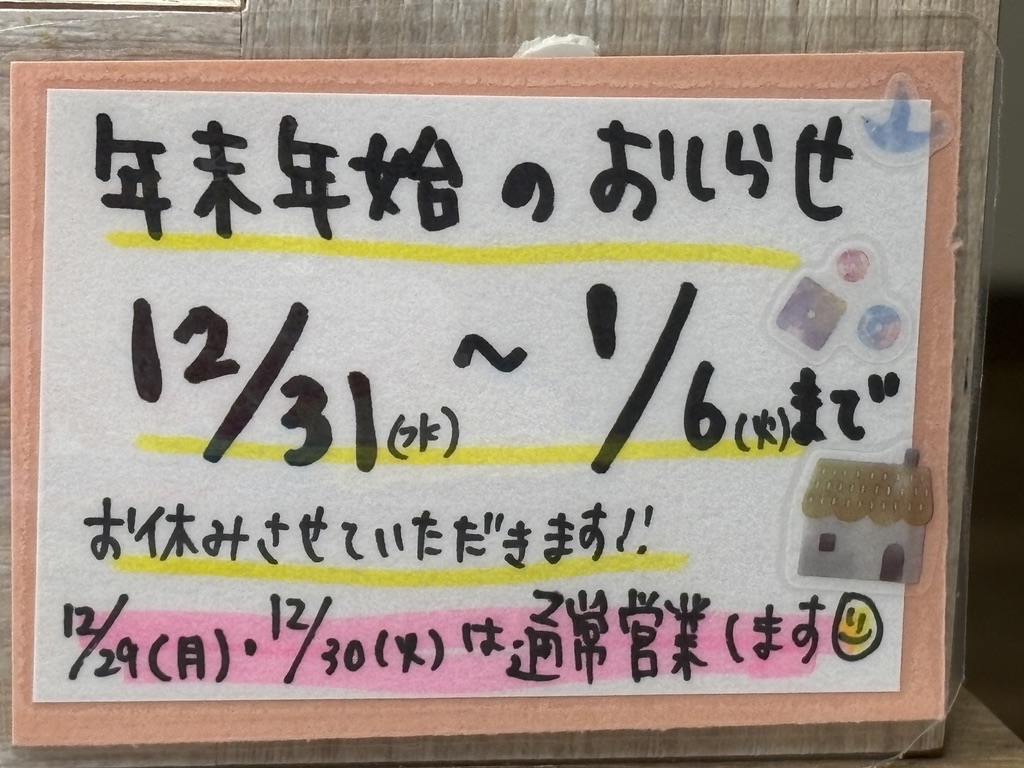 年末年始のおしらせ
12/31(水)～1/6(火)まで
お休みさせていただきます!!
12/29(月)・12/30(火)は通常営業します